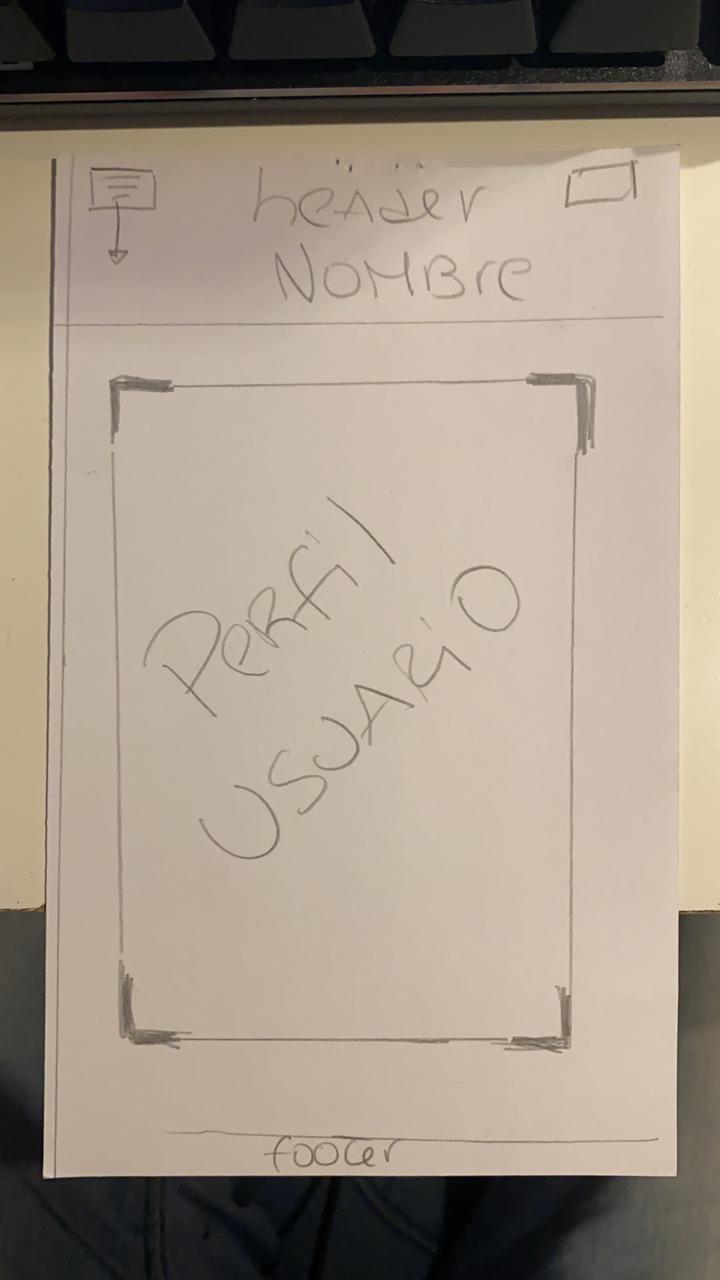 header
NOMBRE
PERfil
USUARiO
footer